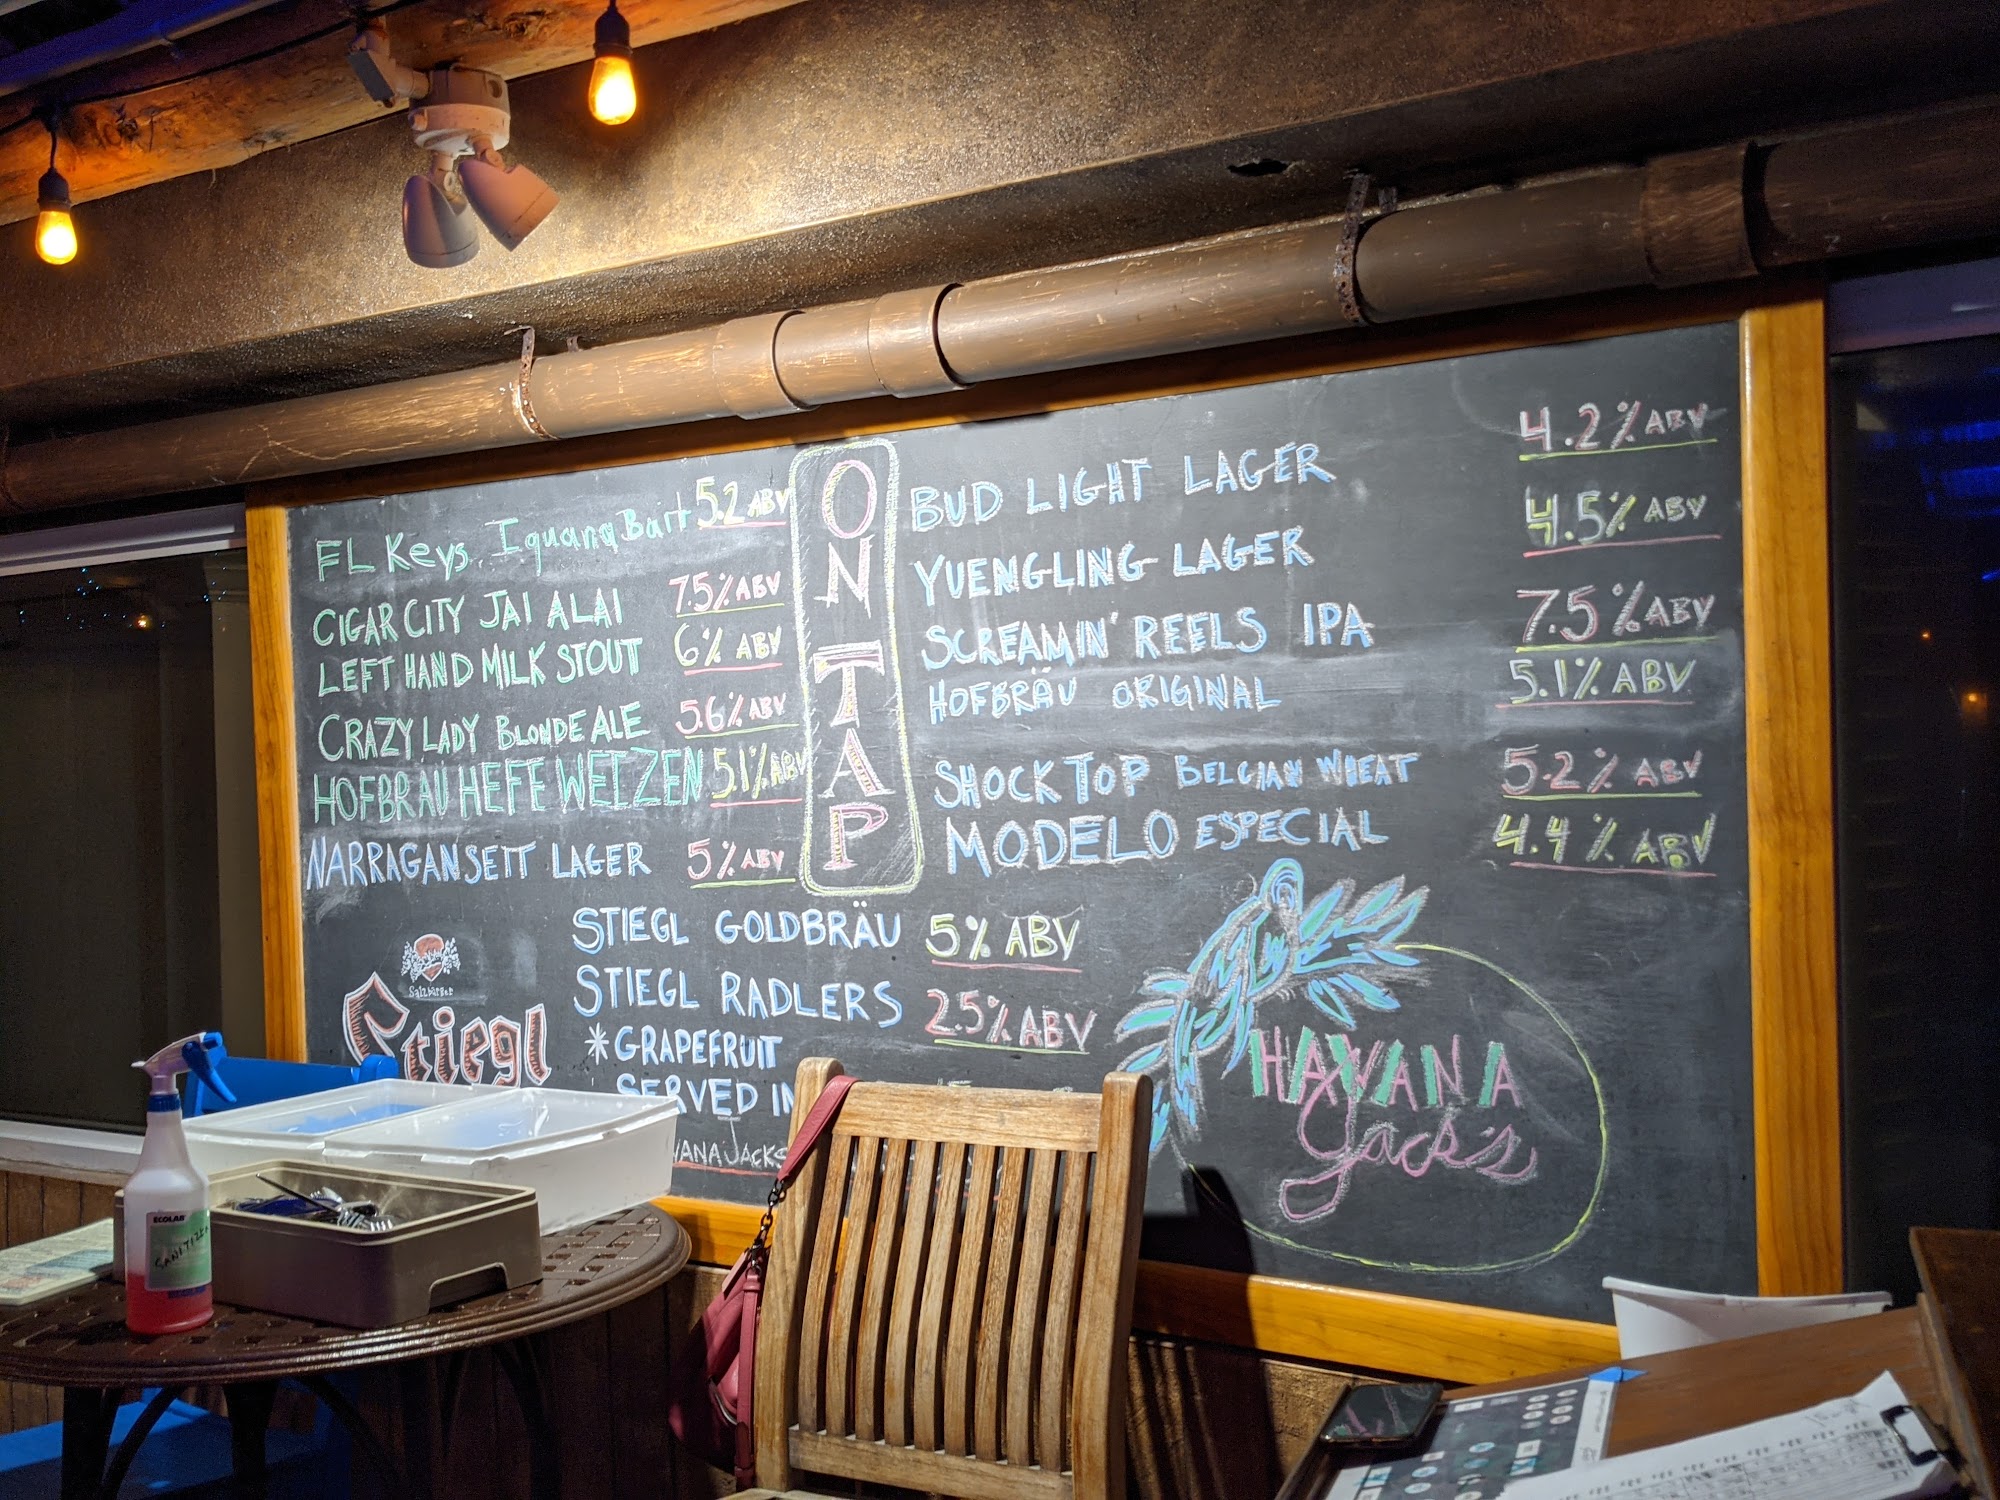 FL Keys. Iguana Bait 5.2 ABV
CIGAR CITY JAI ALAI 7.5% ABV
LEFT HAND MILK STOUT 6% ABV
CRAZY LADY BLONDE ALE 5.6% ABV
HOFBRÄU HEFE WEIZEN 5.1% ABV
NARRAGANSETT LAGER 5% ABV
ON TAP
BUD LIGHT LAGER 4.2% ABV
YUENGLING LAGER 4.5% ABV
SCREAMIN' REELS IPA 7.5% ABV
HOFBRÄU ORIGINAL 5.1% ABV
SHOCK TOP BELGIAN WHEAT 5.2% ABV
MODELO ESPECIAL 4.4% ABV
STIEGL GOLDBRÄU 5% ABV
STIEGL RADLERS 2.5% ABV
*GRAPEFRUIT
SERVED IN
JACKS
Salzburger
Stiegl
HAVANA
Jack's
ECOLAB
SANITIZER